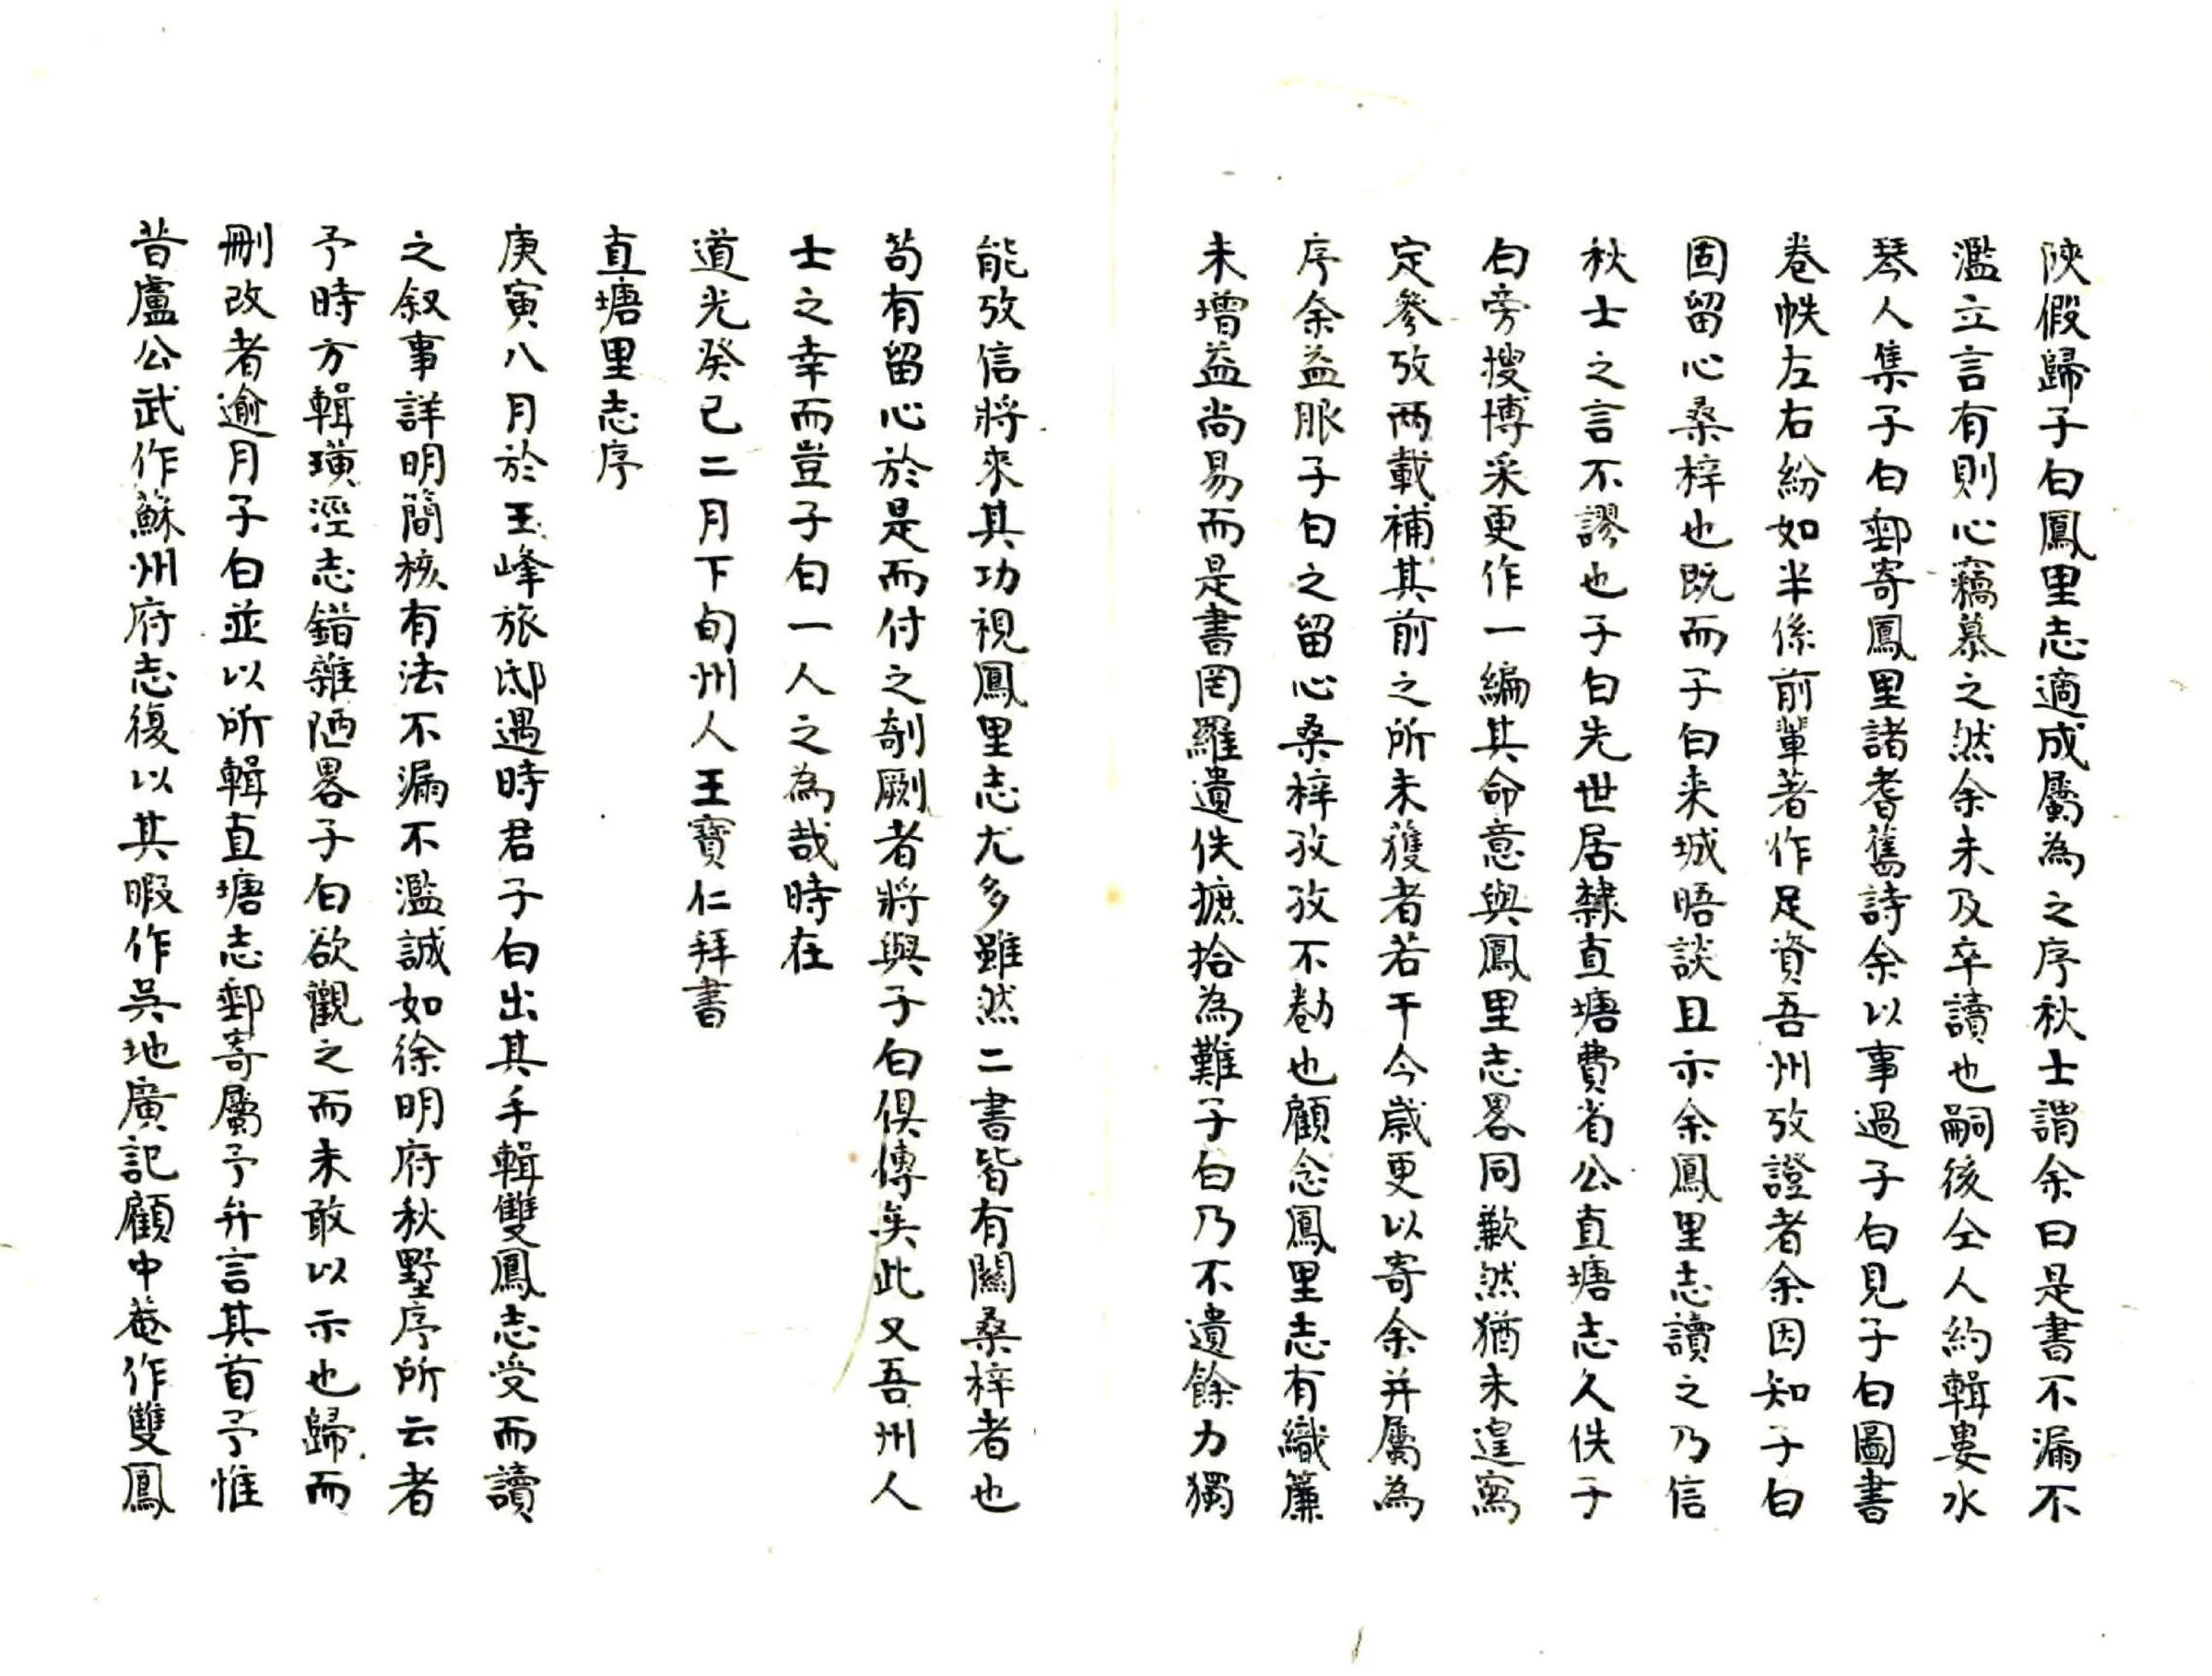 陜假歸子白鳳里志適成屬為之序秋士謂余曰是書不漏不
濫立言有則心竊慕之然余未及卒讀也嗣後仝人約輯婁水
琴人集子白郵寄鳳里諸耆舊詩余以事過子白見子白圖書
卷帙左右紛如半係前輩著作足資吾州攷證者余因知子白
固留心桑梓也既而子白来城晤談且示余鳳里志讀之乃信
秋士之言不謬也子白先世居隸直塘費省公直塘志久佚子
白旁搜博采更作一編其命意與鳳里志畧同歉然猶未遑寫
定參攷两載補其前之所未獲者若干今歲更以寄余并屬為
序余益服子白之留心桑梓孜孜不勌也顧念鳳里志有織簾
未增益尚易而是書罔羅遺佚摭拾為難子白乃不遺餘力獨
能攷信將來其功視鳳里志尤多雖然二書皆有關桑梓者也
苟有留心於是而付之剞劂者將與子白俱傳矣此又吾州人
士之幸而豈子白一人之為哉時在
道光癸巳二月下旬州人王寶仁拜書
直塘里志序
庚寅八月於玉峰旅邸遇時君子白出其手輯雙鳳志受而讀
之叙事詳明簡核有法不漏不濫誠如徐明府秋墅序所云者
予時方輯璜涇志錯雜陋畧子白欲觀之而未敢以示也歸而
刪改者逾月子白並以所輯直塘志郵寄屬予弁言其首予惟
昔盧公武作蘇州府志復以其暇作吳地廣記顧中菴作雙鳳